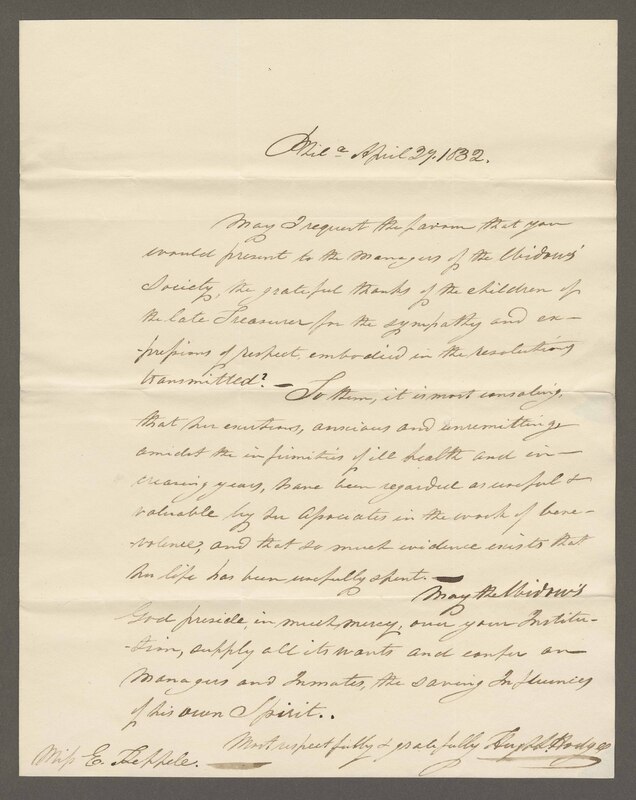 Phil.a April 27. 1832.
May I request the favour that you
would present to the Managers of the Widows'
Society, the grateful thanks of the children of
the late Treasurer for the sympathy and ex-
-pressions of respect embodied in the resolutions
transmitted? — To them, it is most consoling,
that her exertions, anxious and unremitting
amidst the infirmities of ill health and in-
creasing years, have been regarded as useful &
valuable by her Associates in the work of bene-
-volence, and that so much evidence exists that
her life has been usefully spent. —
May the Widow's
God preside, in much mercy, over your Institu-
-tion, supply all its wants and confer on
Managers and Inmates, the saving Influences
of his own Spirit..
Most respectfully & gratefully Hugh L. Hodge
Miss E. Keppele.